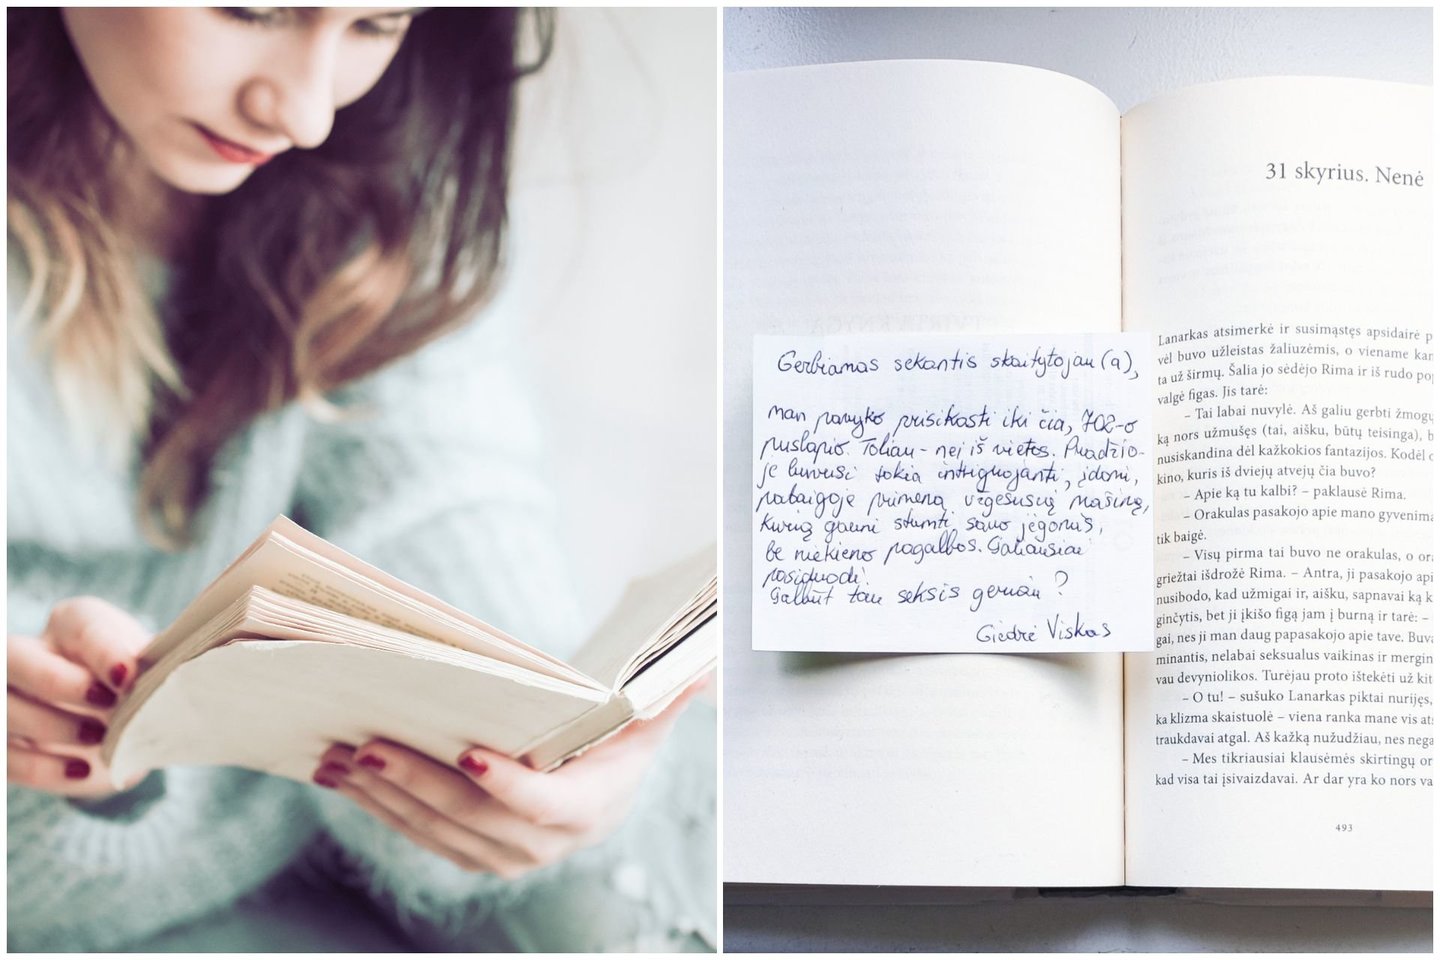 Gerbiamas sekantis skaitytojau (a),
man pavyko prisikasti iki čia, 702-o
puslapio. Toliau - nei iš vietos. Pradžio-
je buvusi tokia intriguojanti, įdomi,
pabaigoje primena užgesusią mašiną,
kurią gauni stumti savo jėgomis,
be niekieno pagalbos. Galiausiai
pasiduodi.
Galbūt tau seksis geriau?
Giedrė Viskas
31 skyrius. Nenė
Lanarkas atsimerkė ir susimąstęs apsidairė p
vėl buvo užleistas žaliuzėmis, o viename kam
ta už širmų. Šalia jo sėdėjo Rima ir iš rudo pop
valgė figas. Jis tarė:
– Tai labai nuvylė. Aš galiu gerbti žmogų
ką nors užmušęs (tai, aišku, būtų teisinga), b
nusiskandina dėl kažkokios fantazijos. Kodėl o
kino, kuris iš dviejų atvejų čia buvo?
– Apie ką tu kalbi? – paklausė Rima.
– Orakulas pasakojo apie mano gyvenima
tik baigė.
– Visų pirma tai buvo ne orakulas, o ora
griežtai išdrožė Rima. – Antra, ji pasakojo api
nusibodo, kad užmigai ir, aišku, sapnavai ką k
ginčytis, bet ji įkišo figą jam į burną ir tarė: –
gai, nes ji man daug papasakojo apie tave. Buva
minantis, nelabai seksualus vaikinas ir mergin
vau devyniolikos. Turėjau proto ištekėti už kit
– O tu! – sušuko Lanarkas piktai nurijęs,
ka klizma skaistuolė – viena ranka mane vis ats
traukdavai atgal. Aš kažką nužudžiau, nes nega
– Mes tikriausiai klausėmės skirtingų or
kad visa tai įsivaizdavai. Ar dar yra ko nors va
493